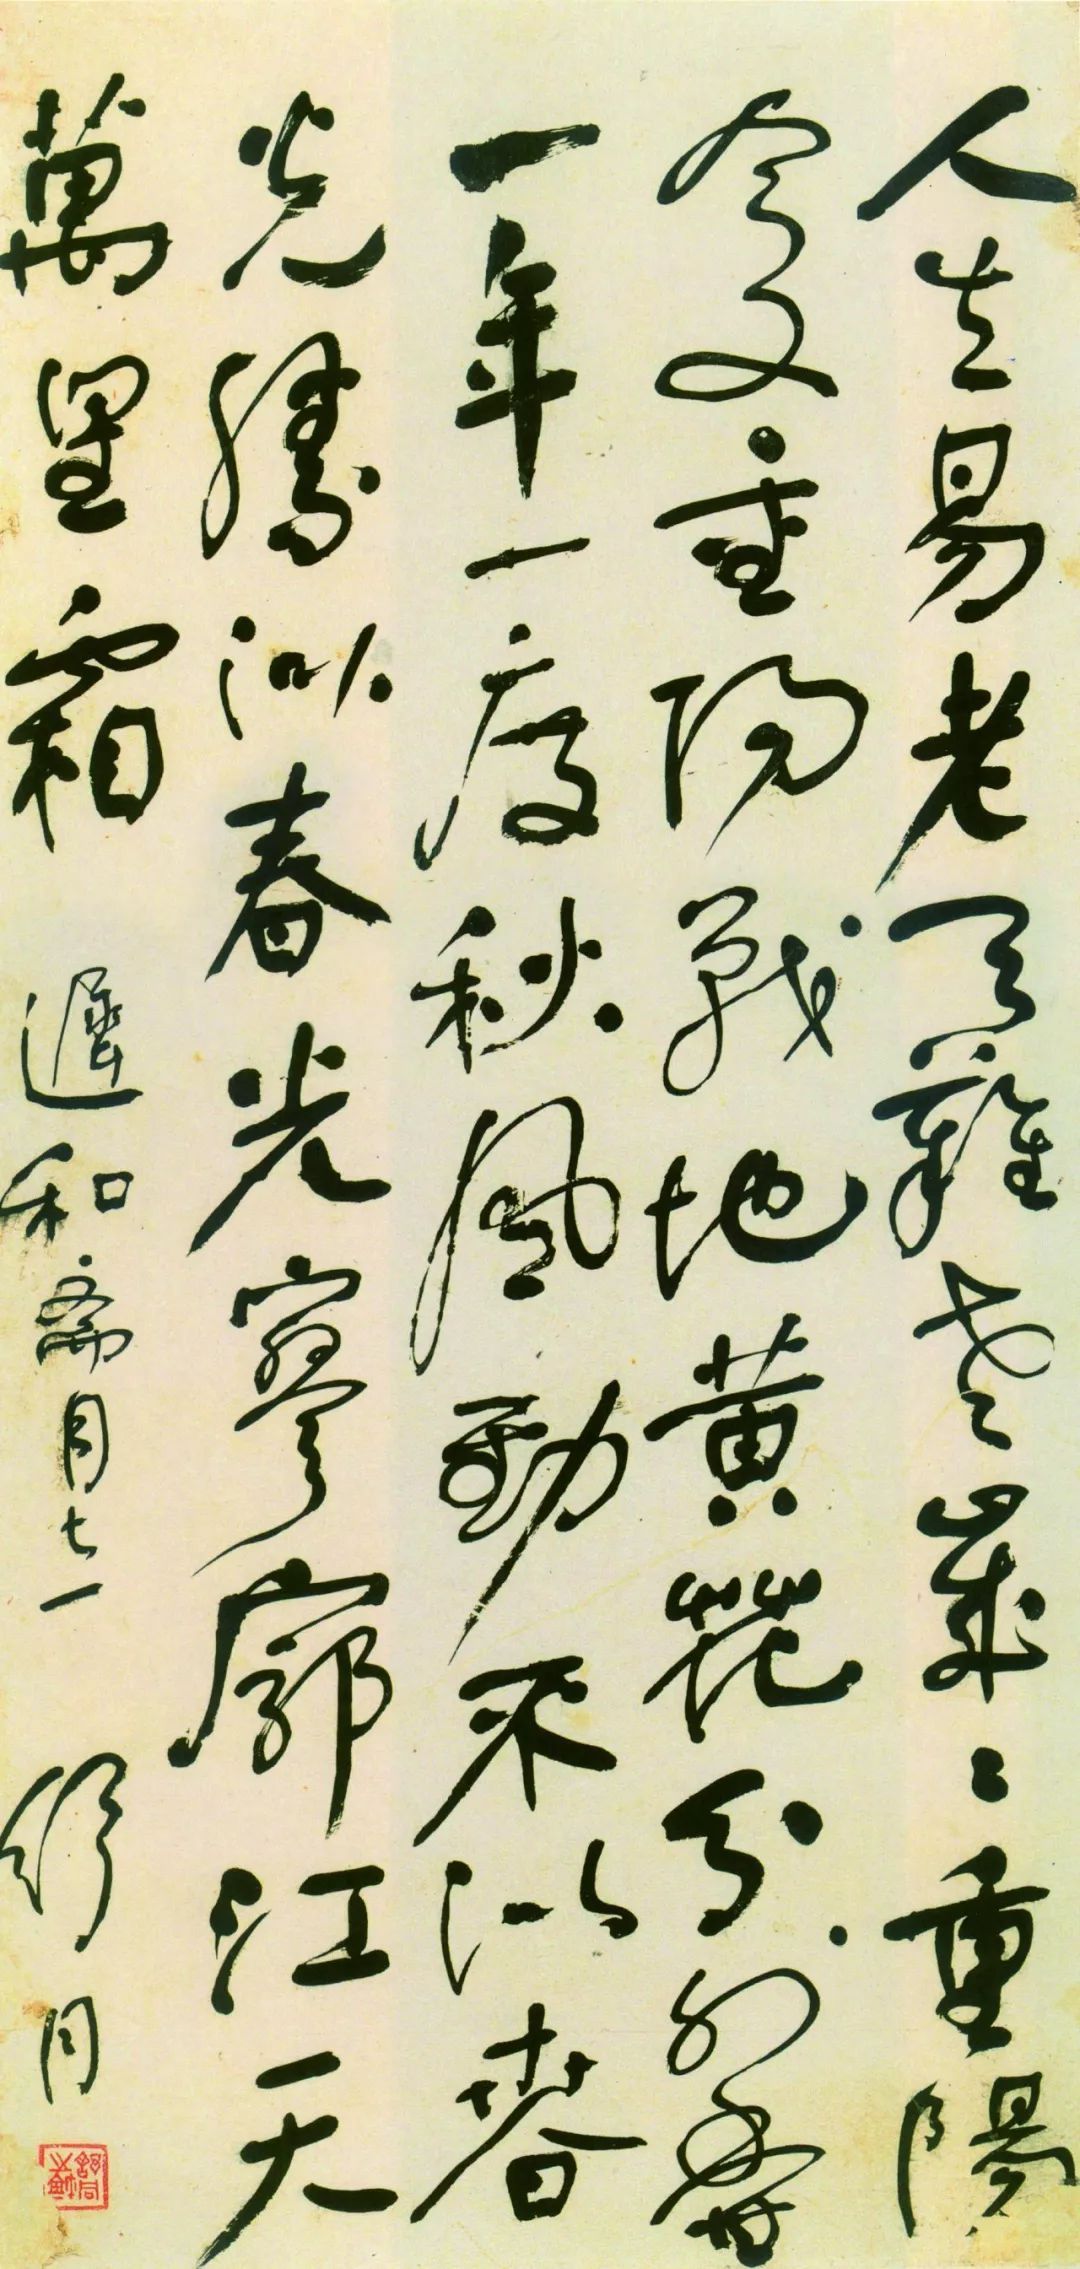 人生易老天難老歲々重陽
今又重陽戰地黃花分外香
一年一度秋風勁不似春
光勝似春光寥廓江天
萬里霜 遲和齋同志 舒同